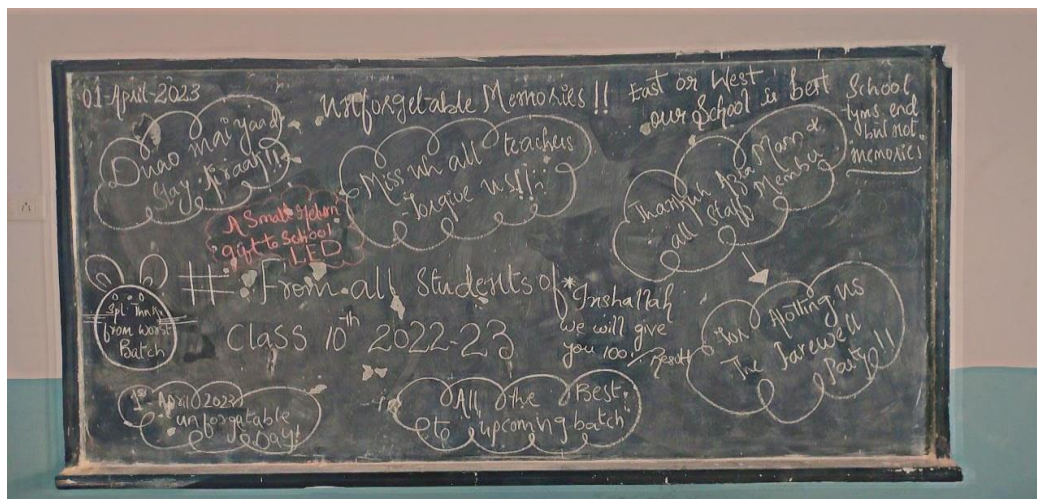 01-April-2023
unforgetable Memories!!
East or West
our School is best
School
tyms end
but not
memories
Duao mai yaad
Stay
Miss uh all teachers
forgive us!!
Thankuh Apza Mam &
all Staff Members
A Small return
gift to School
LED
# From all Students of
Class 10th 2022-23
Spl. Thnx
from worst
Batch
* Inshallah
we will give
you 100% Result
for Alloting us
The farewell
Party!!
1st April (2023)
unforgetable
Day!
All the Best
to upcoming batch